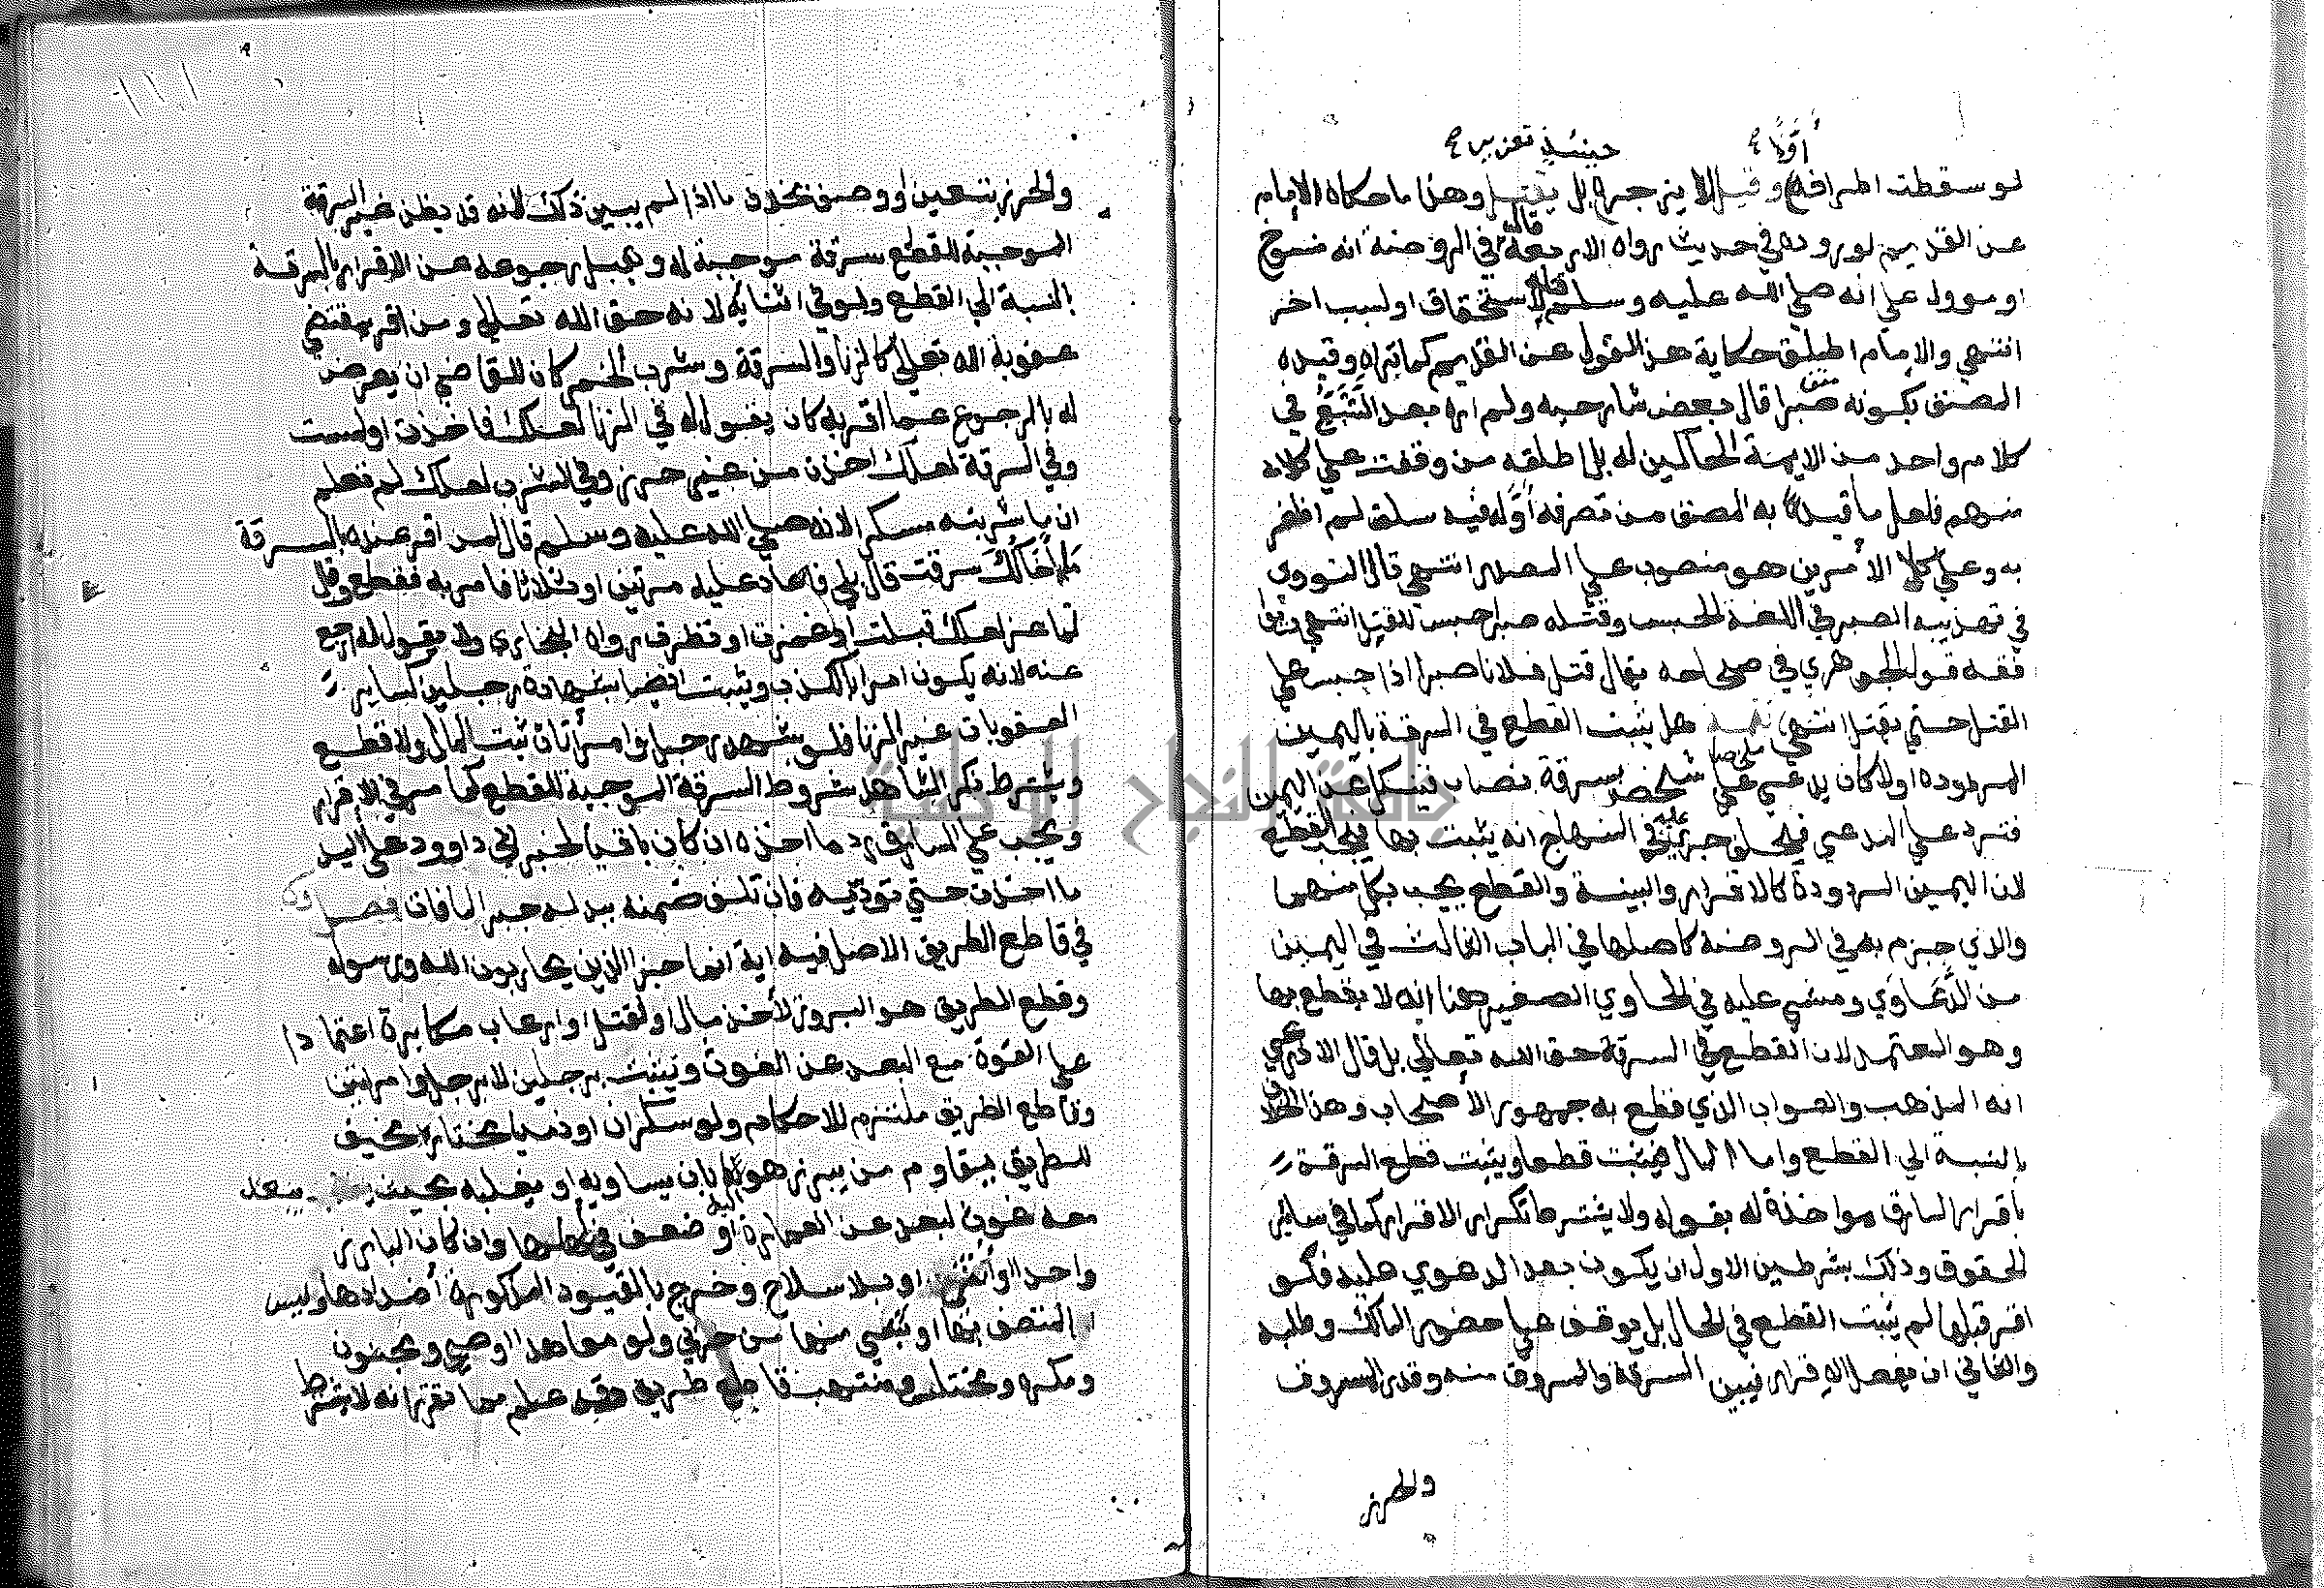 أوفا حينئذ تعزير
لو سقطت المرافعة وقيل لا ينزجر بل يقتل وهذا ما حكاه الإمام
عن القديم لوروده في حديث رواه الاربعة قال في الروضة انه منسوخ
او موول على انه صلى الله عليه وسلم قتله لاستحقاق او لسبب اخر
انتهى والإمام اطلق حكاية هذا القول عن القديم كما تراه وقيده
المصنف بكونه صبرا قال بعض شارحيه ولم اره بعد التتبع في
كلام واحد من الايمة الحاكين له بل اطلقه من وقفت على كلامه
منهم فلعل ما قيد به المصنف من تصرفه أوله فيه سلف لم اظفر
به وعلى كلا الأمرين هو منصوب على المصدر انتهى قال النووي
في تهذيبه الصبر في اللغة الحبس وقتله صبرا حبس للقتل انتهى
فقه قول الجوهري في صحاحه يقال قتل فلان صبرا اذا حبس على
القتل حتى يقتل انتهى هل يثبت القطع في السرقة باليمين
المردودة اولا كان يدعي على شخص سرقة نصاب فينكل عن اليمين
فترد على المدعي فيحلف جزم في المنهاج انه يثبت بها فيجب القطع
لان اليمين المردودة كالاقرار والبينة والقطع يجب بكل منهما
والذي جزم به في الروضة كاصلها في الباب الثالث في اليمين
من الدعاوي ومشى عليه في الحاوي الصغير هنا انه لا يقطع بها
وهو المعتمد لان القطع في السرقة حق الله تعالى بل قال الاذرعي
انه المذهب والصواب الذي قطع به جمهور الأصحاب وهذا الخلاف
بالنسبة الى القطع واما المال فيثبت قطعا ويثبت قطع السرقة
باقرار السارق مواخذة له بقوله ولا يشترط تكرار الاقرار كما في سائر
الحقوق وذلك بشرطين الاول ان يكون بعد الدعوى عليه فلو
اقر قبلها لم يثبت القطع في الحال بل يوقف على حضور المالك وطلبه
والثاني ان يفصل الاقرار فيبين السرقة والمسروق منه وقدر المسروق
والحرز
والحرز بتعيين او وصف بخلاف ما اذا لم يبين ذلك لانه قد يظن غير السرقة
الموجبة للقطع سرقة موجبة له ويقبل رجوعه عن الاقرار بالسرقة
بالنسبة الى القطع ولو في اثنايه لانه حق الله تعالى ومن اقر بمقتضي
عقوبة الله تعالى كالزنا والسرقة وشرب الخمر كان للقاضي ان يعرض
له بالرجوع عما اقر به كان يقول له في الزنا لعلك فاخذت او لمست
وفي السرقة لعلك اخذت من غير حرز وفي الشرب لعلك لم تعلم
ان ما شربته مسكر لانه صلى الله عليه وسلم قال لمن اقر عنده بالسرقة
ما إخالك سرقت قال بلى فاعاد عليه مرتين او ثلاثا فامر به فقطع وقال
لماعز لعلك قبلت او غمزت او نظرت رواه البخاري ولا يقول له ارجع
عنه لانه يكون امرا بالكذب ويثبت ايضا بشهادة رجلين كساير
العقوبات غير الزنا فلو شهد رجل وامرأتان ثبت المال ولا قطع
ويشترط ذكر الشاهد شروط السرقة الموجبة للقطع كما مر في الاقرار
ويجب على السارق رد ما اخذه ان كان باقيا لخبر ابي داوود على اليد
ما اخذت حتى توديه فان تلف ضمنه ببدله جبرا لما فات فصل
في قاطع الطريق الاصل فيه اية انما جزا الذين يحاربون الله ورسوله
وقطع الطريق هو البروز لأخذ مال او لقتل او ارعاب مكابرة اعتمادا
على القوة مع البعد عن الغوث ويثبت برجلين لا برجل وامراتين
وقاطع الطريق ملتزم للاحكام ولو سكران او ذميا مختار مخيف
للطريق يقاوم من يبرز هو له بان يساويه او يغلبه بحيث يبعد
معه غوث لبعد عن العمارة او ضعف في اهلها وان كان البارز
واحدا او أنثى او بلا سلاح وخرج بالقيود المذكورة أضدادها وليس
المتصف بها او بشي منها من حربي ولو معاهدا وصبي ومجنون
ومكره ومختلس ومنتهب قاطع طريق وقد علم مما تقرر انه لا يشترط
جامعة النجاح الوطنية